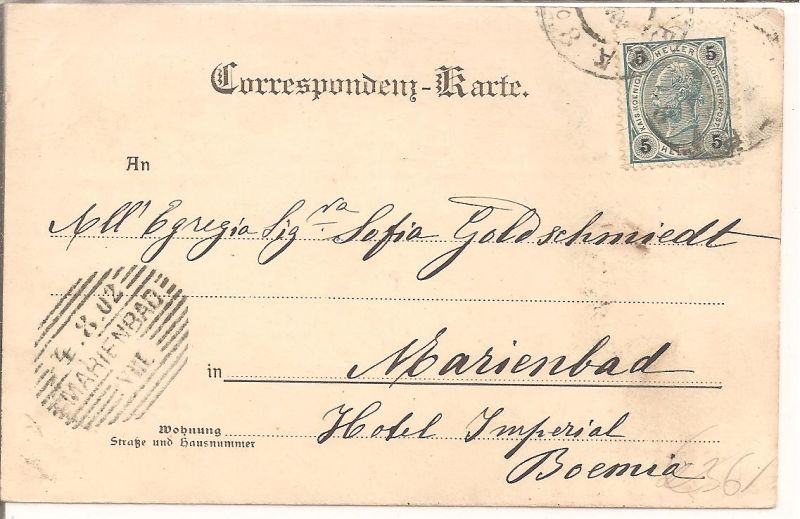 Correspondenz-Karte.
5 HELLER 5
KAIS. KOENIGL.
5 5
An
All' Egregia Sig.ra Sofia Goldschmiedt
4.8.02
MARIENBAD
in Marienbad
Wohnung
Straße und Hausnummer
Hotel Imperial
Boemia
6361